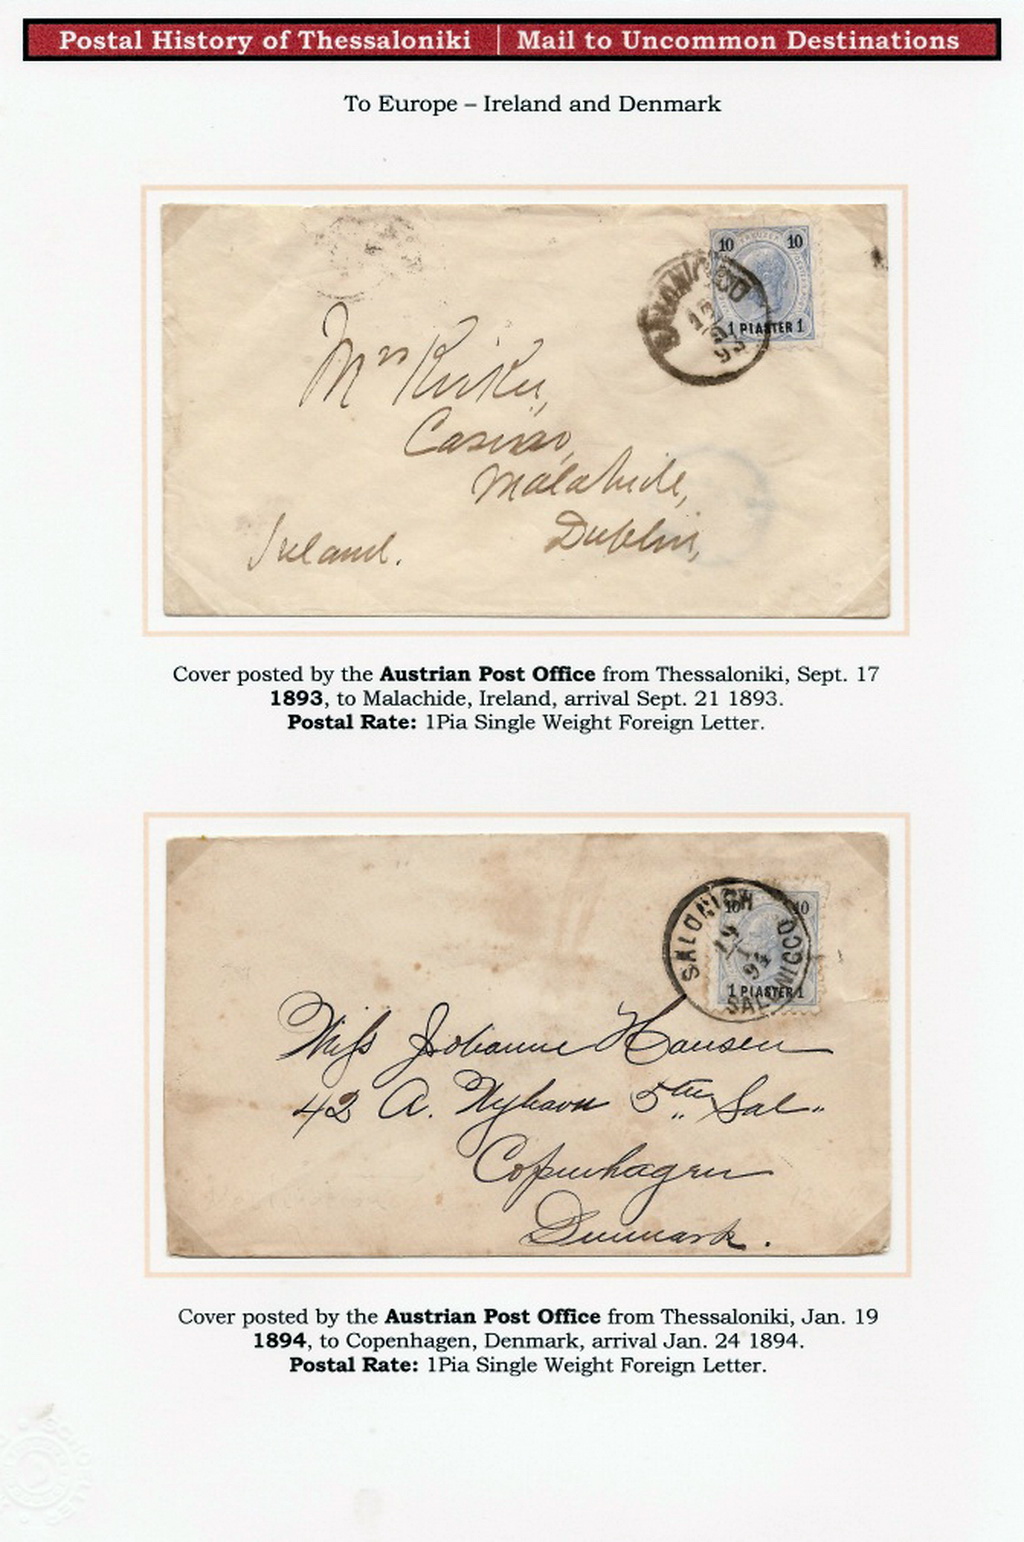 Postal History of Thessaloniki | Mail to Uncommon Destinations
To Europe – Ireland and Denmark
10 10
SALONICCO
93
1 PIASTER 1
Mrs
Casino,
Malahide,
Dublin,
Ireland.
Cover posted by the Austrian Post Office from Thessaloniki, Sept. 17
1893, to Malachide, Ireland, arrival Sept. 21 1893.
Postal Rate: 1Pia Single Weight Foreign Letter.
10 10
SALONICH
19
1
94
SALONICCO
1 PIASTER 1
Miss Johanne Hansen
42 A. Nyhavn 5the Sal
Copenhagen
Denmark.
Cover posted by the Austrian Post Office from Thessaloniki, Jan. 19
1894, to Copenhagen, Denmark, arrival Jan. 24 1894.
Postal Rate: 1Pia Single Weight Foreign Letter.